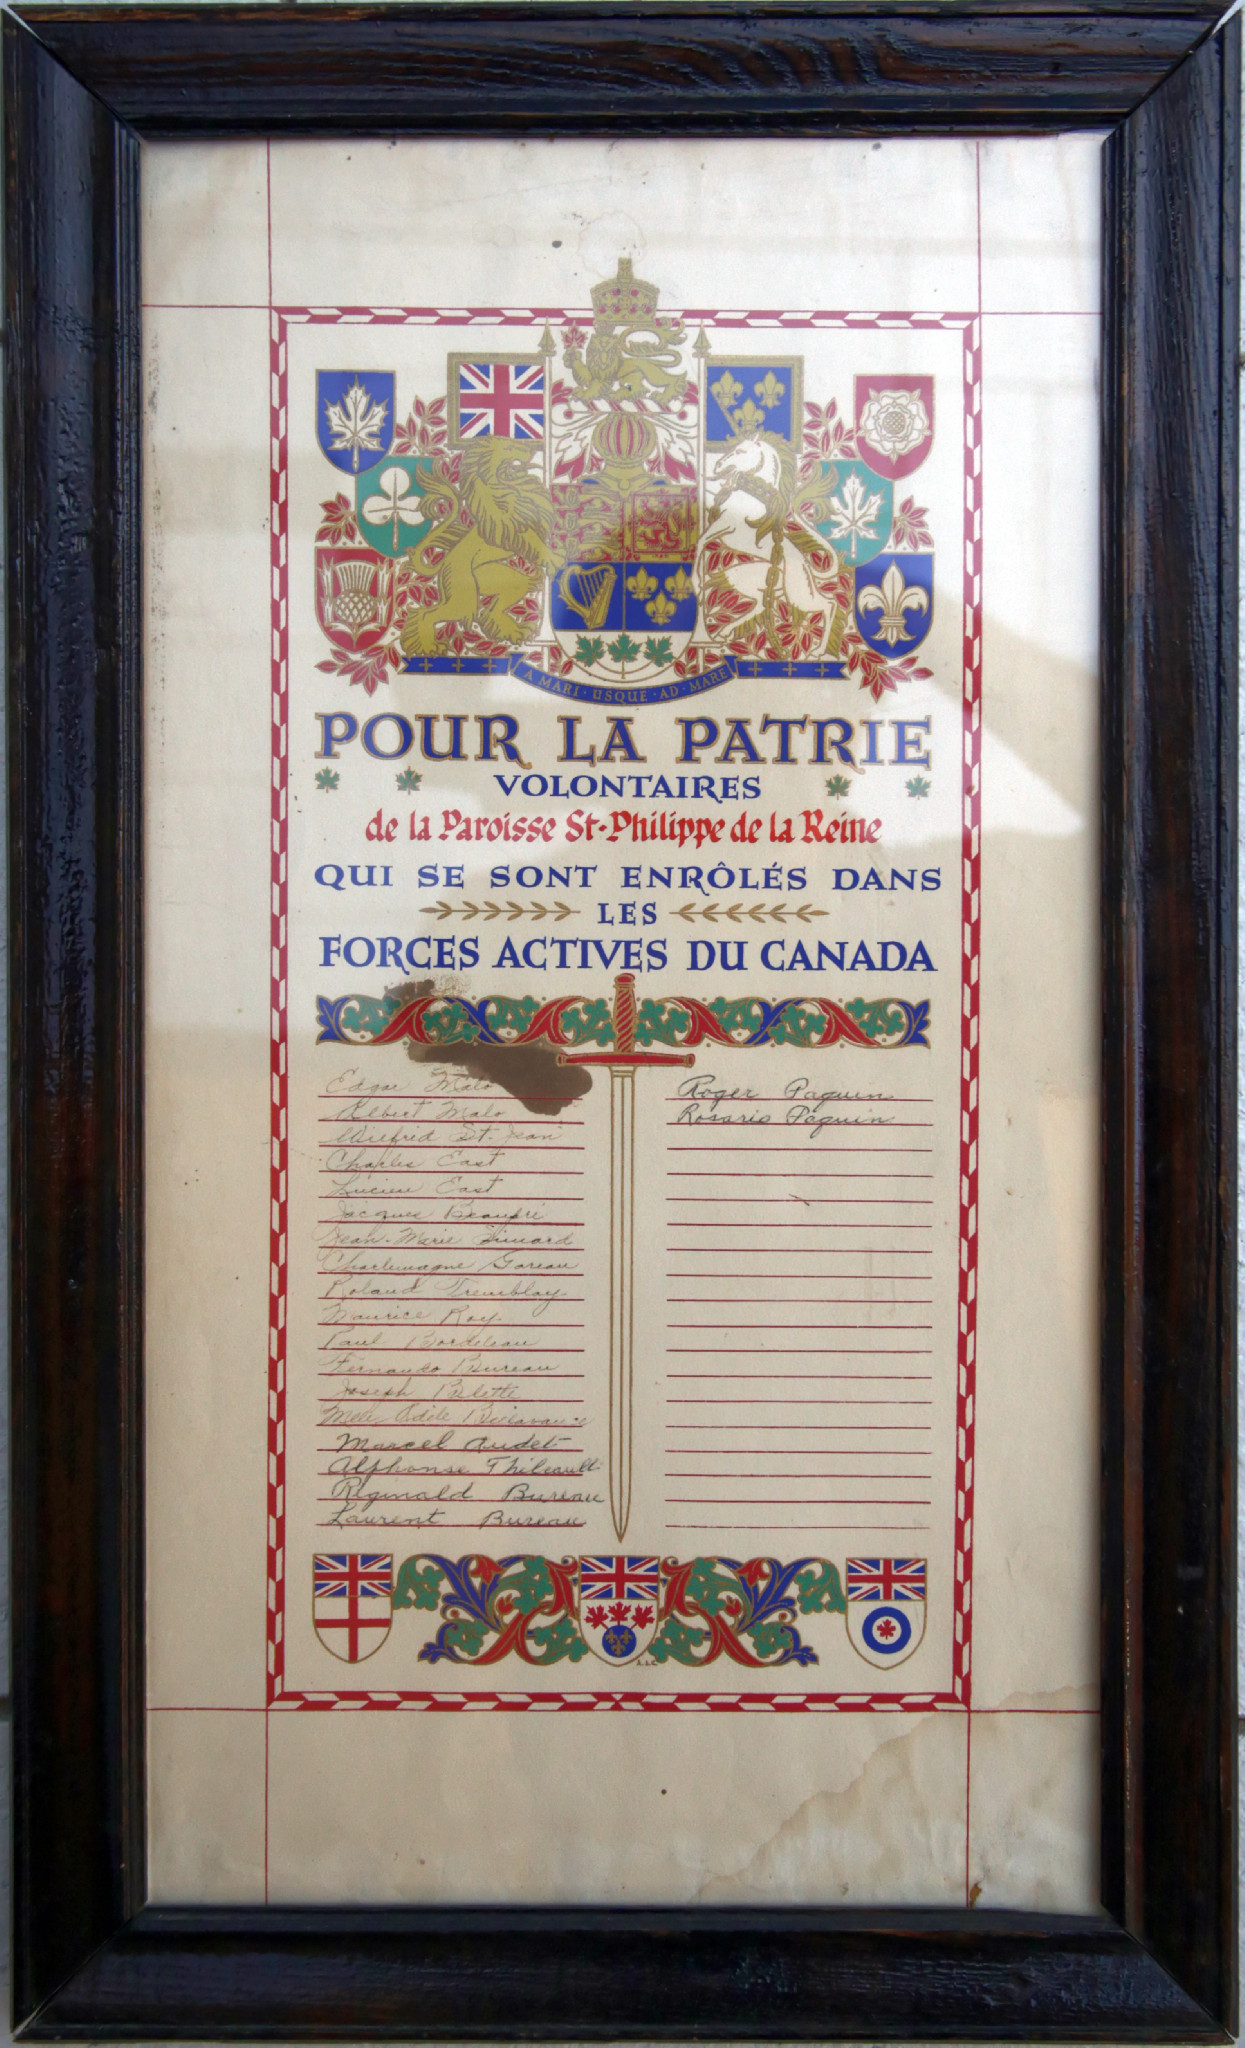 A MARI · USQUE · AD · MARE
POUR LA PATRIE
VOLONTAIRES
de la Paroisse St-Philippe de la Reine
QUI SE SONT ENRÔLÉS DANS
LES
FORCES ACTIVES DU CANADA
Edgar Malo
Albert Malo
Wilfrid St-Jean
Charles East
Lucien East
Jacques Beaupré
Jean-Marie Simard
Charlemagne Gareau
Roland Tremblay
Maurice Roy
Paul Bordeleau
Fernando Bureau
Joseph
Marcel Audet
Alphonse Thibeault
Réginald Bureau
Laurent Bureau
Roger Paquin
Rosario Paquin